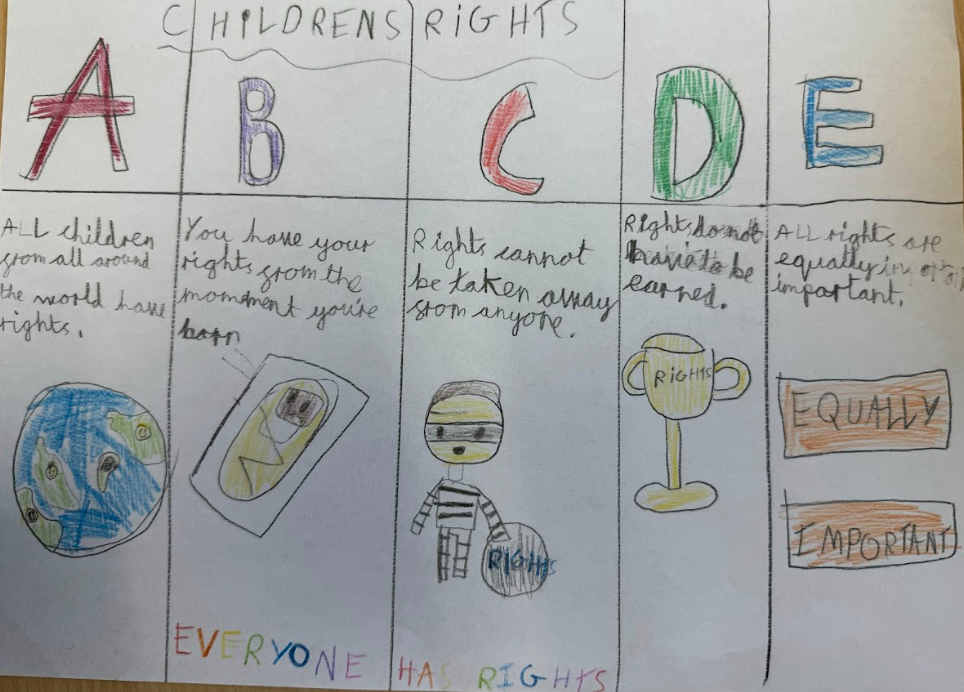 CHILDRENS RIGHTS
A
B
C
D
E
ALL children
from all around
the world have
rights.
You have your
rights from the
moment you're
born
Rights cannot
be taken away
from anyone.
Rights do not
have to be
earned.
ALL rights are
equally
important.
RIGHTS
RIGHTS
EQUALLY
IMPORTANT
EVERYONE HAS RIGHTS